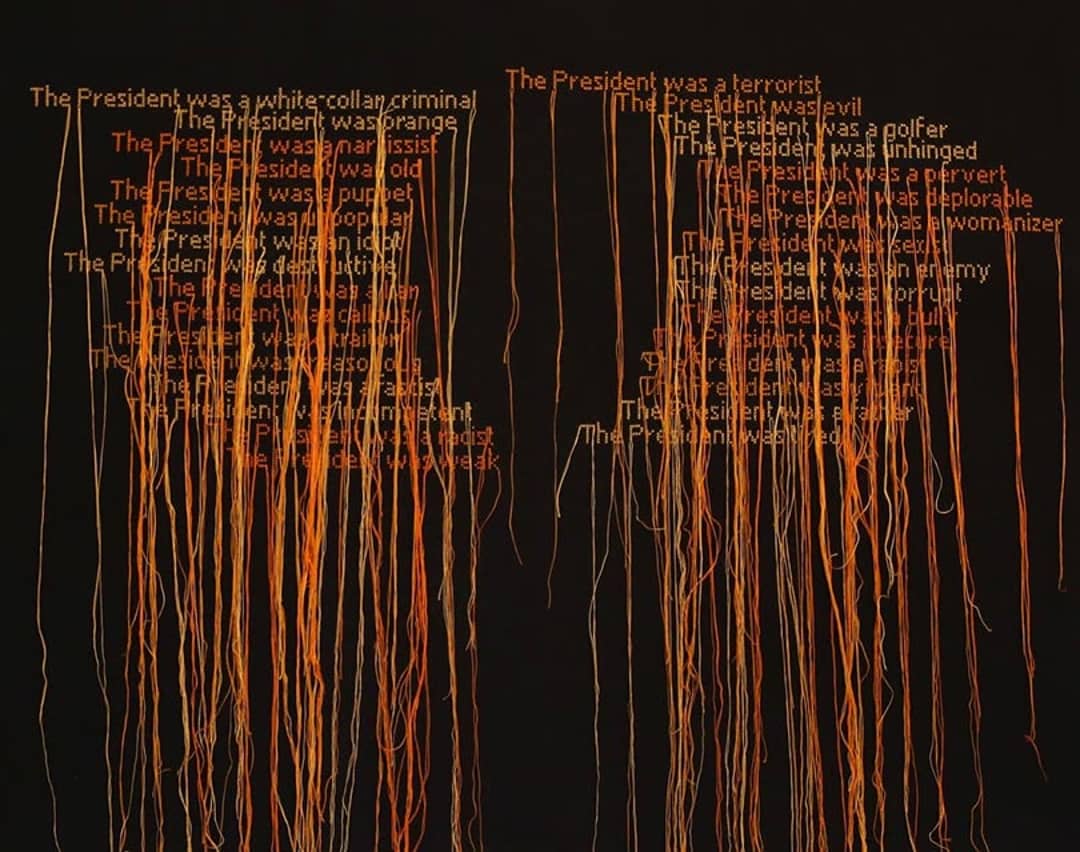 The President was a white-collar criminal
The President was orange
The President was a narcissist
The President was old
The President was a puppet
The President was unpopular
The President was an idiot
The President was destructive
The President was a liar
The President was callous
The President was a traitor
The President was
The President was a fascist
The President was incompetent
The President was a racist
The President was weak
The President was a terrorist
The President was evil
The President was a golfer
The President was unhinged
The President was a pervert
The President was deplorable
The President was a womanizer
The President was sexist
The President was an enemy
The President was corrupt
The President was a bully
The President was insecure
The President was a
The President was
The President was a father
The President was tired